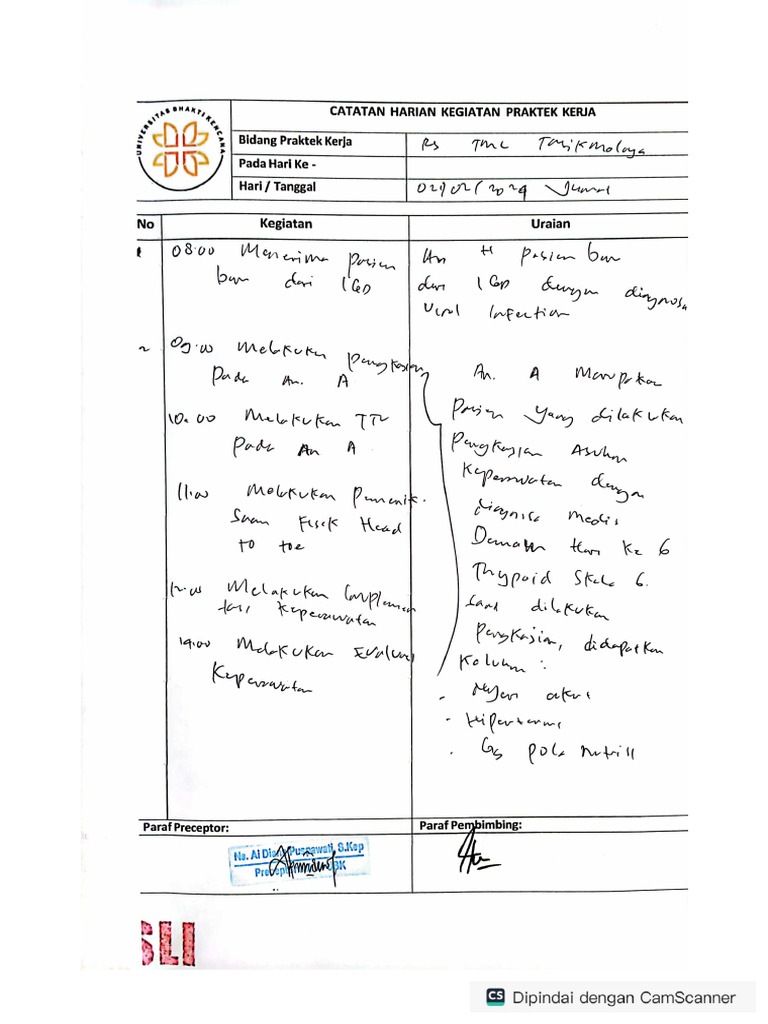 UNIVERSITAS BHAKTI KENCANA
CATATAN HARIAN KEGIATAN PRAKTEK KERJA
Bidang Praktek Kerja RS TMC Tasikmalaya
Pada Hari Ke -
Hari / Tanggal 02/02/2024 Jumat
No Kegiatan Uraian
1 08.00 Menerima pasien
baru dari IGD
An H pasien baru
dari IGD dengan diagnosa
Viral Infection
2 09.00 Melakukan pengkajian
Pada An. A
10.00 Melakukan TTV
pada An A
11.00 Melakukan Pemerik-
saan Fisik Head
to toe
12.00 Melakukan Implemen
tasi keperawatan
14.00 Melakukan Evaluasi
Keperawatan
An. A Merupakan
Pasien yang dilakukan
Pengkajian Asuhan
Keperawatan dengan
diagnosa medis
Demam Hari Ke 6
Thypoid Skala 6.
saat dilakukan
Pengkajian, didapatkan
Keluhan :
- Nyeri akut
- Hipertermi
- Gg pola nutrisi
Paraf Preceptor: Paraf Pembimbing:
Puspawati, S.Kep
SLI
CS Dipindai dengan CamScanner